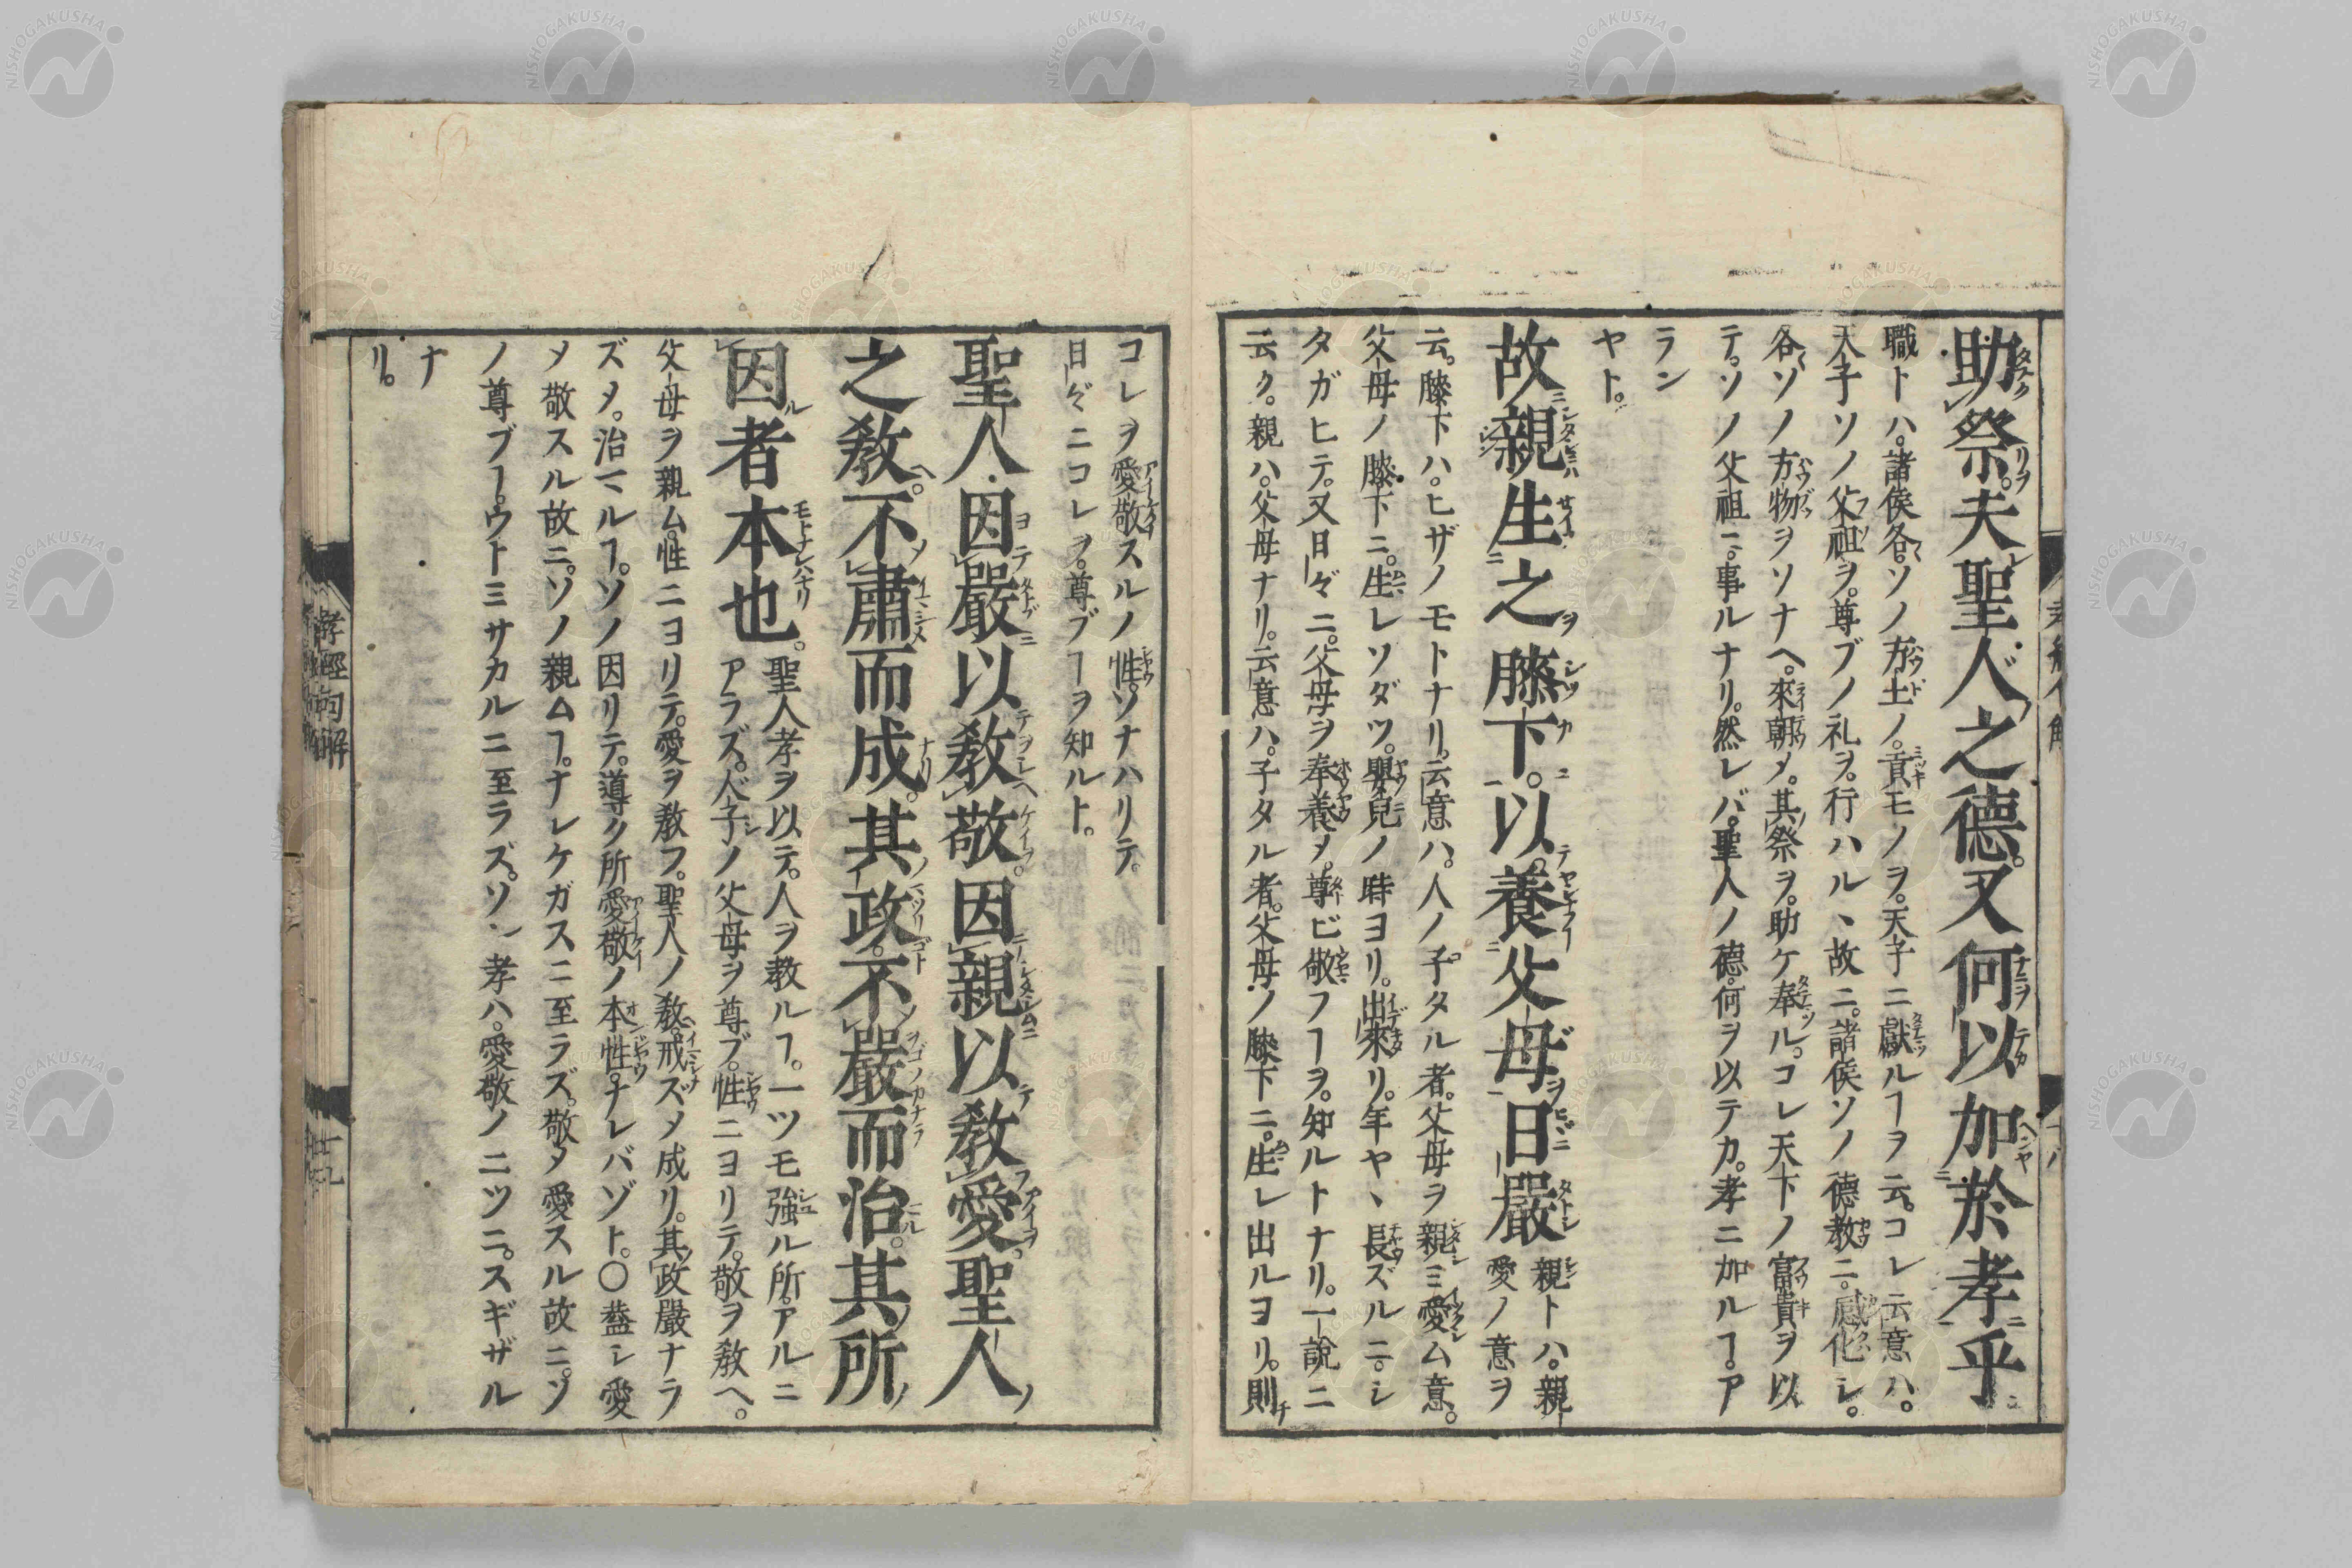 助祭夫聖人之德。又何以加於孝乎
職トハ。諸侯各〻ソノ方土ノ。貢モノヲ。天子ニ獻ルヿヲ云。コレ云意ハ。
天子ソノ父祖ヲ。尊ブノ礼ヲ。行ハル丶故ニ。諸侯ソノ德教ニ。感化シ。
各〻ソノ方物ヲソナヘ。來朝〆。其祭ヲ。助ケ奉ル。コレ天下ノ富貴ヲ以
テ。ソノ父祖ニ。事ルナリ。然レバ。聖人ノ德。何ヲ以テカ。孝ニ加ルヿ。ア
ラン
ヤト。
故親生之膝下。以養父母日嚴
親トハ。親
愛ノ意ヲ
云。膝下ハ。ヒザノモトナリ。云意ハ。人ノ子タル者。父母ヲ親ミ愛ム意。
父母ノ膝下ニ。生レソダツ。嬰兒ノ時ヨリ。出來リ。年ヤ丶長ズルニ。シ
タガヒテ。又日〻ニ。父母ヲ奉養〆。尊ビ敬フヿヲ。知ルトナリ。一說ニ
云ク。親ハ。父母ナリ。云意ハ。子タル者。父母ノ膝下ニ。生レ出ルヨリ。則
コレヲ愛敬スルノ性。ソナハリテ。
日〻ニコレヲ。尊ブヿヲ知ルト。
聖人因嚴以教敬。因親以教愛。聖人
之教。不肅而成。其政。不嚴而治。其所
因者本也。
聖人孝ヲ以テ。人ヲ教ルヿ。一ツモ強ル所。アルニ
アラズ。人子ノ父母ヲ尊ブ。性ニヨリテ。敬ヲ教ヘ。
父母ヲ親ム。性ニヨリテ。愛ヲ教フ。聖人ノ教。戒ズ〆成リ。其政嚴ナラ
ズ〆。治マルヿ。ソノ因リテ。導ク所。愛敬ノ本性。ナレバゾト。〇蓋シ愛
〆敬スル故ニ。ソノ親ムヿ。ナレケガスニ至ラズ。敬〆愛スル故ニ。ソ
ノ尊ブヿ。ウトミサカルニ至ラズ。ソレ孝ハ。愛敬ノ二ツニ。スギザル
ナ
リ。
孝經句解
NISHOGAKUSHA